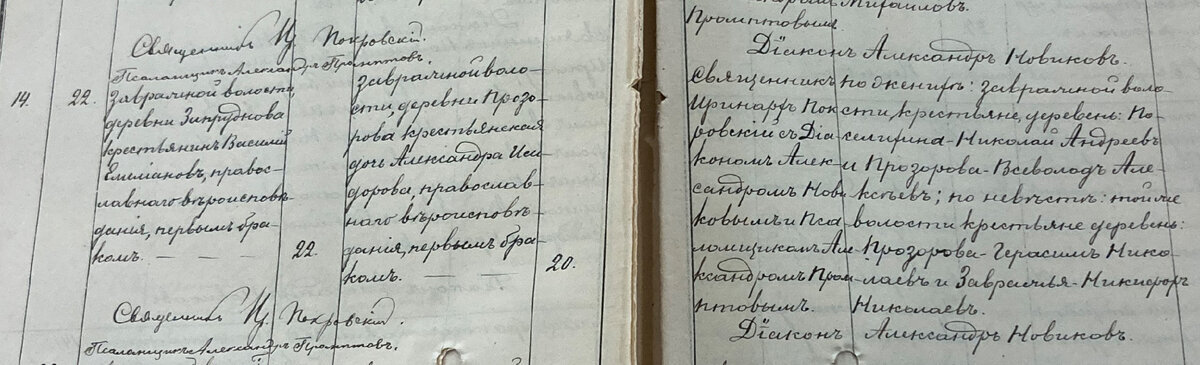 Священникъ И. Покровскій.
Псаломщикъ Александръ Промптовъ.
14.
22.
Заврачной волости,
деревни Запруднова
крестьянинъ Василій
Емеліановъ, правос-
лавнаго вѣроисповѣ-
данія, первымъ бра-
комъ.
22.
Заврачной воло-
сти, деревни Прозо-
рова, крестьянская
дочь Александра Иси-
дорова, православ-
наго вѣроисповѣ-
данія, первымъ бра-
комъ.
20.
Священникъ И. Покровскій.
Псаломщикъ Александръ Промптовъ.
Михаиловъ.
Промптовымъ
Діаконъ Александръ Новиковъ.
Священникъ
Иринархъ Пок-
ровскій съ Діа-
кономъ Алек-
сандромъ Нови-
ковымъ и Пса-
ломщикомъ Але-
ксандромъ Пром-
птовымъ.
по женихѣ: Заврачной воло-
сти, крестьяне, деревень: Но-
Николай Андреевъ
и Прозорова - Всеволодъ Але-
ксѣевъ; по невѣстѣ: той же
волости крестьяне деревень:
Прозорова - Герасимъ Нико-
лаевъ и Заврачья - Никифоръ
Николаевъ.
Діаконъ Александръ Новиковъ.